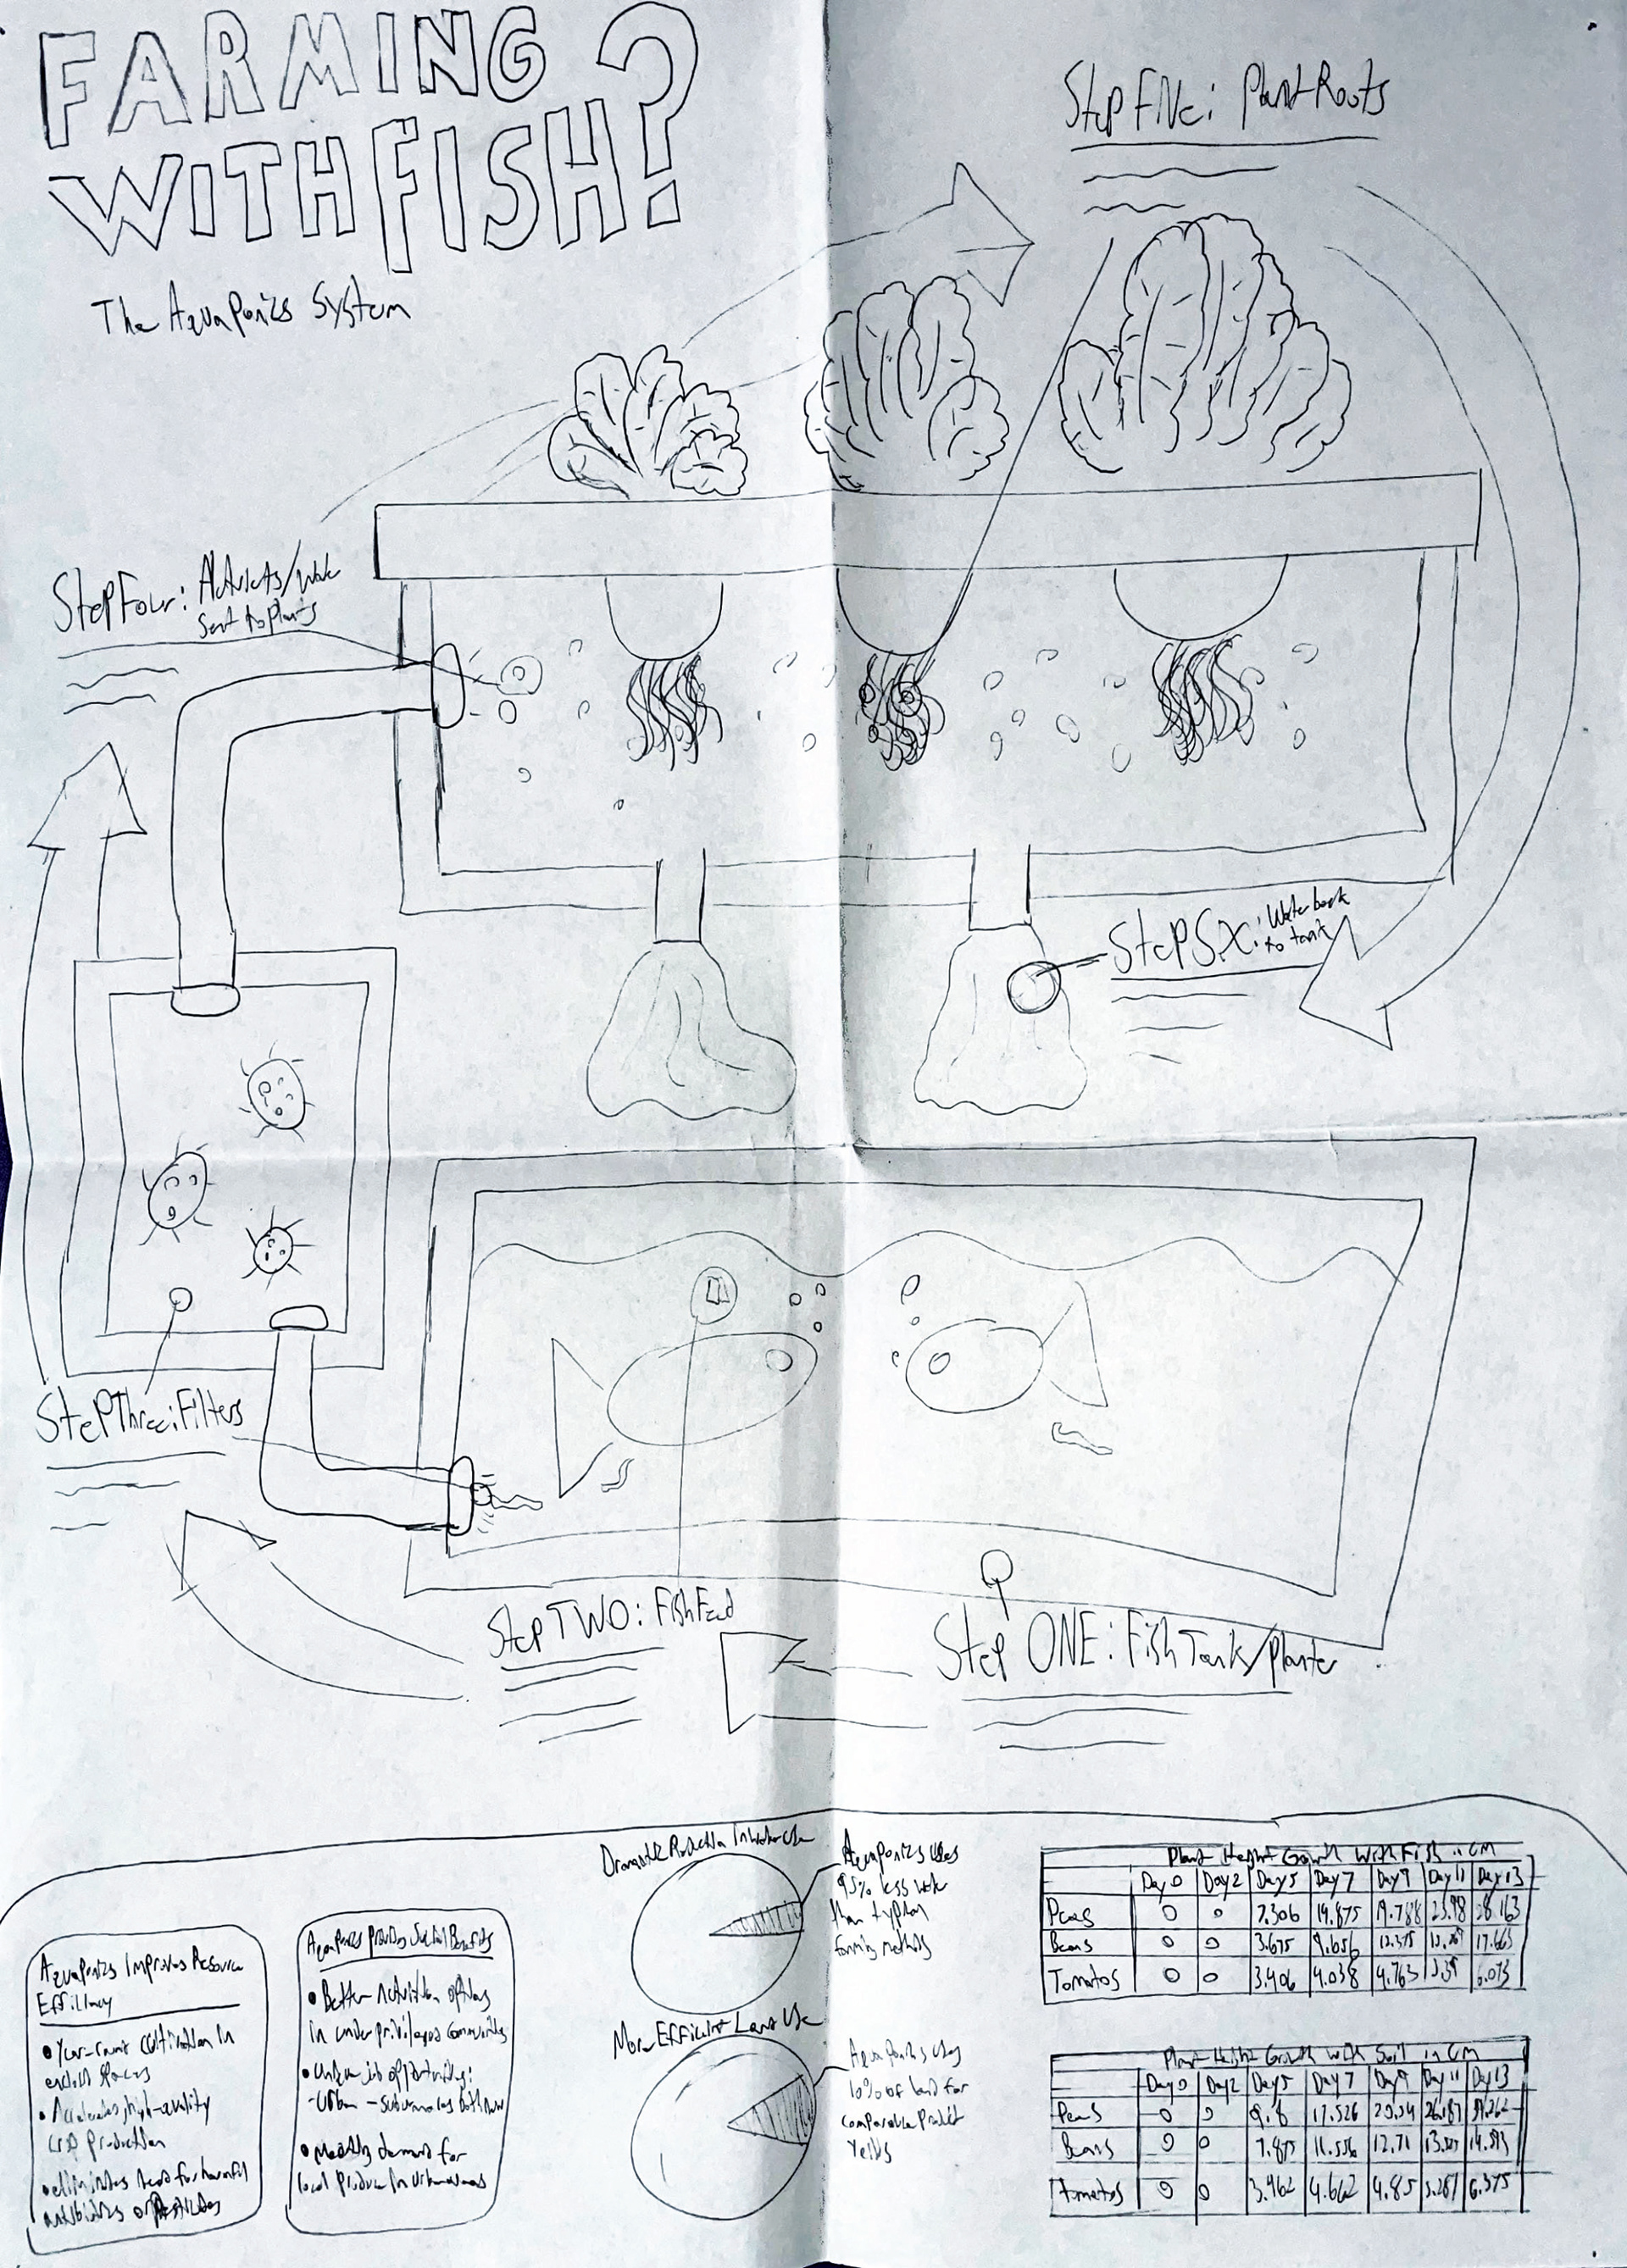 FARMING
WITH FISH?
The Aquaponics System
Step Five: Plant Roots
Step Four: Nutrients/Water
Sent to Plants
Step Six: Water back
to tank
Step Three: Filters
Step TWO: Fish Feed
Step ONE: Fish Tank/Planter
Aquaponics Improves Resource
Efficiency
• Year-round cultivation in
• Accelerates, high-quality
crop production
• eliminates need for harmful
antibiotics or Pesticides
Aquaponics provides Social Benefits
• Better nutrition options
in underprivileged communities
• Unique job opportunities:
-Urban -suburban
• Meeting demand for
local produce in urban areas
Dramatic Reduction In Water Use
Aquaponics uses
95% less water
than typical
farming methods
More Efficient Land Use
Aquaponics uses
10% of land for
comparable product
Yeilds
Plant Height Growth With Fish in CM
Day 0 Day 2 Day 5 Day 7 Day 9 Day 11 Day 13
Peas 0 0 7.306 14.875 19.788 23.98 28.163
Beans 0 0 3.675 9.656 12.375 17.663
Tomatos 0 0 3.406 4.038 4.763 6.073
Plant Height Growth with Soil in CM
Day 0 Day 2 Day 5 Day 7 Day 9 Day 11 Day 13
Peas 0 0 9.8 17.526
Beans 0 0 7.875 11.556 12.71
Tomatos 0 0 3.962 4.662 4.85 6.375